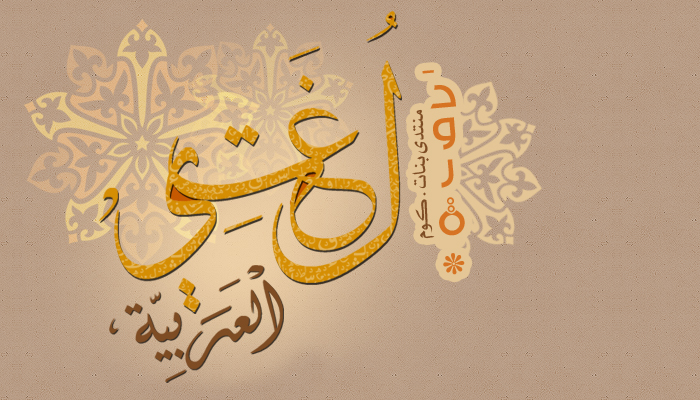 لُغَتِي
الْعَرَبِيَّة،
منتدى بنات . كوم